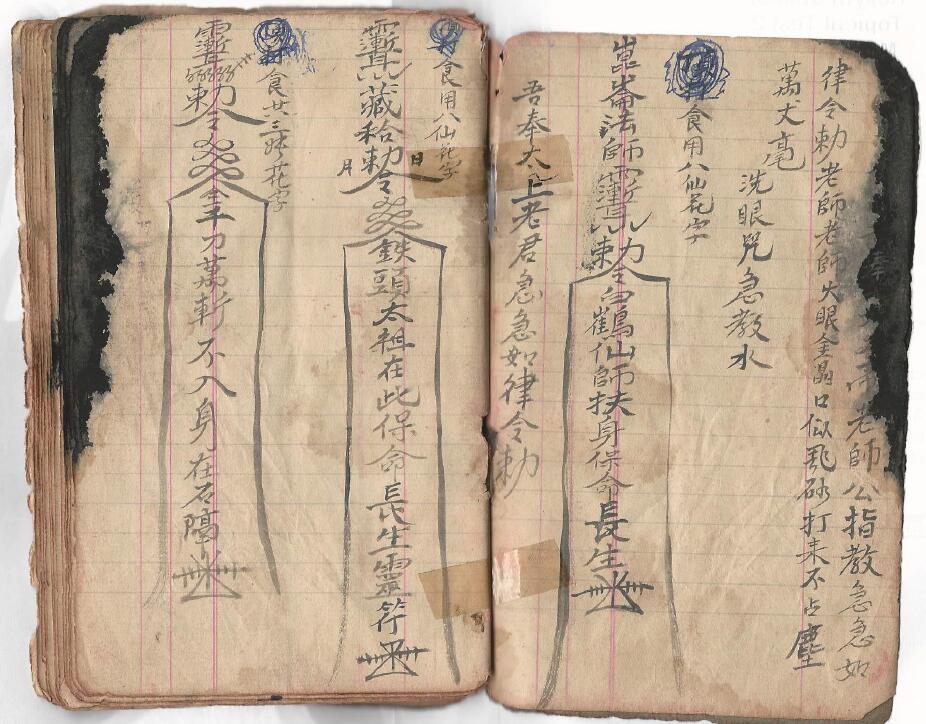 老師公指教急急如
律令勅老師老師火眼金晶口似飛砂打來不占塵
萬丈毫
洗眼咒急教水
食用八仙花字
崑崙法師勅令白鶴仙師扶身保命長生
吾奉太上老君急急如律令勅
食用八仙花字
藏給勅令鉄頭太祖在此保命長生靈符
日
月
食廿三 花字
勅令 刀萬斬不入身在石隔